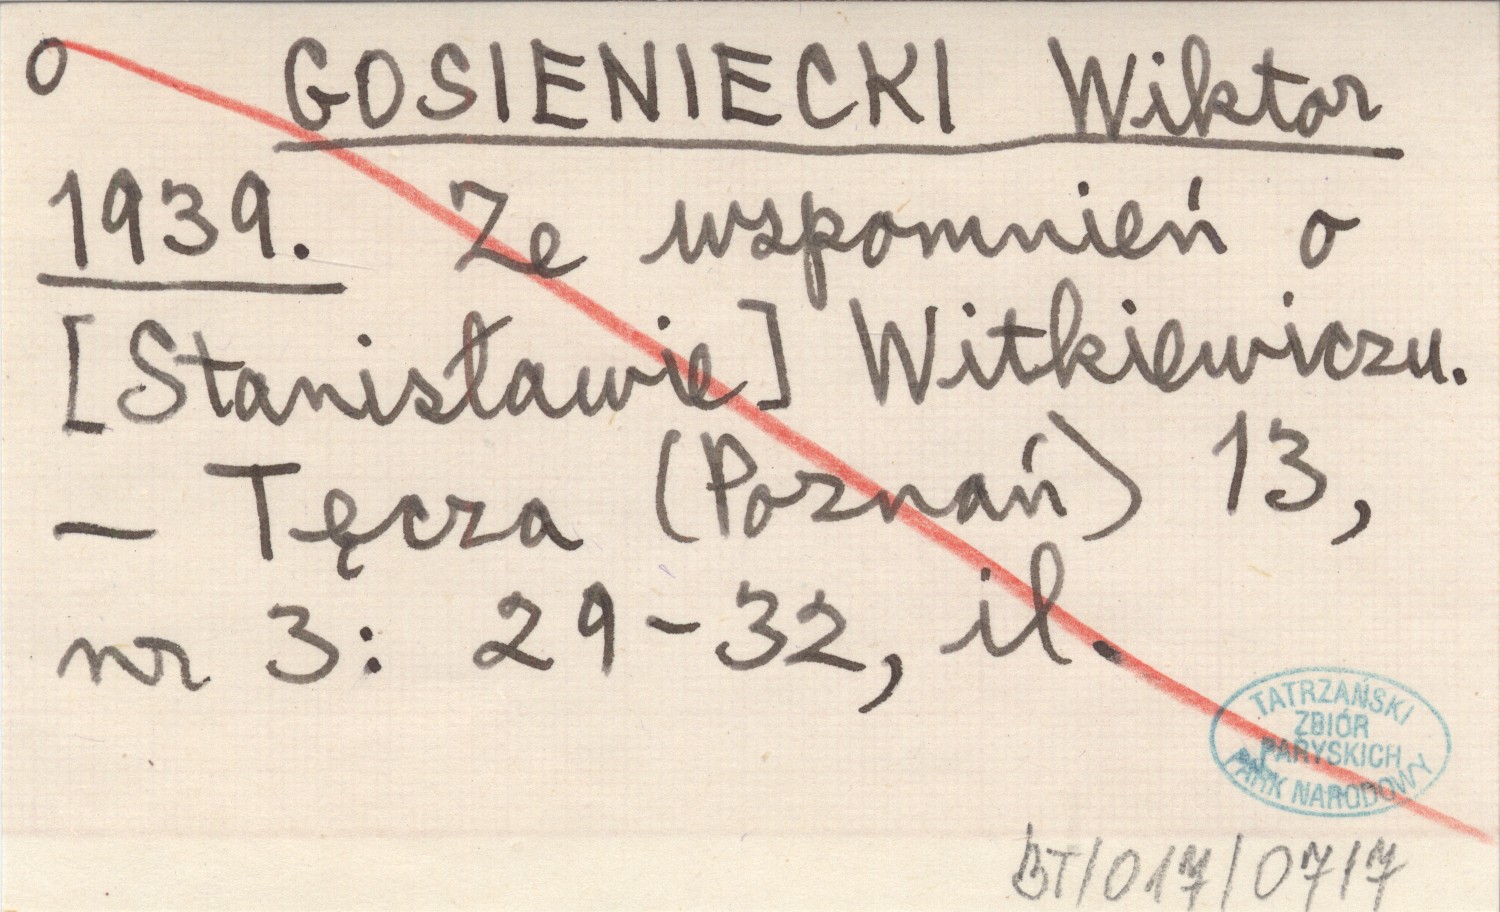 o GOSIENIECKI Wiktor
1939. Ze wspomnień o
[Stanisławie] Witkiewiczu.
— Tęcza (Poznań) 13,
nr 3: 29-32, il.
TATRZAŃSKI
ZBIÓR
PARYSKICH
PARK NARODOWY
BT/017/0717